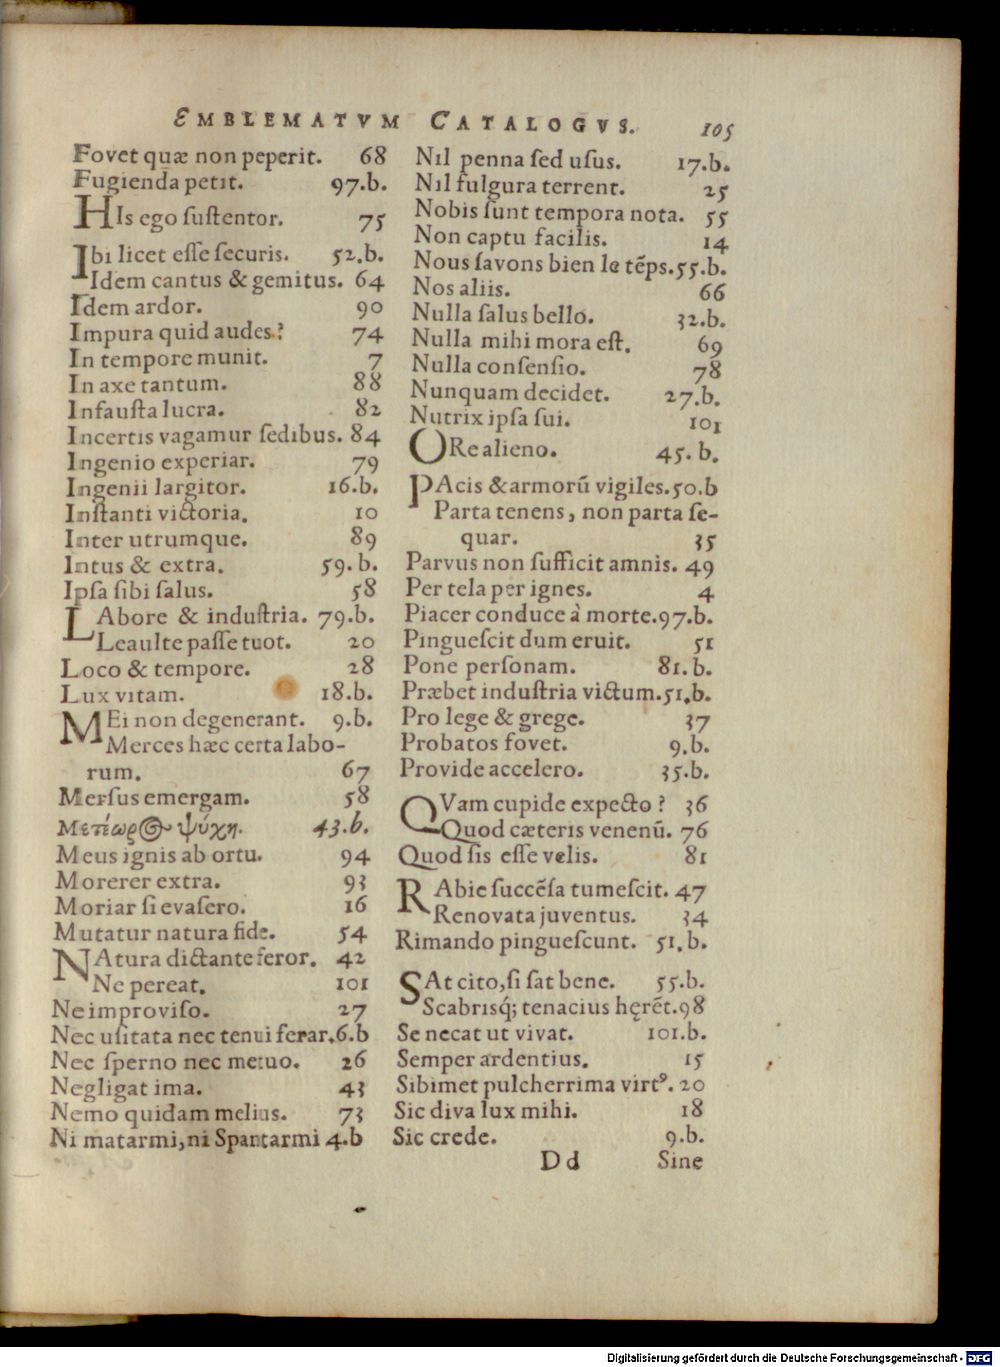 EMBLEMATVM CATALOGVS. 105
Fovet quæ non peperit. 68
Fugienda petit. 97.b.
HIs ego ſuſtentor. 75
Ibi licet eſſe ſecuris. 52.b.
Idem cantus & gemitus. 64
Idem ardor. 90
Impura quid audes? 74
In tempore munit. 7
In axe tantum. 88
Infauſta lucra. 82
Incertis vagamur ſedibus. 84
Ingenio experiar. 79
Ingenii largitor. 16.b.
Inſtanti victoria. 10
Inter utrumque. 89
Intus & extra. 59.b.
Ipſa ſibi ſalus. 58
LAbore & induſtria. 79.b.
Leaulte paſſe tuot. 20
Loco & tempore. 28
Lux vitam. 18.b.
MEi non degenerant. 9.b.
Merces hæc certa labo-
rum. 67
Merſus emergam. 58
Μετέωρος ψύχη. 43.b.
Meus ignis ab ortu. 94
Morerer extra. 93
Moriar ſi evaſero. 16
Mutatur natura fide. 54
NAtura dictante feror. 42
Ne pereat. 101
Ne improviſo. 27
Nec uſitata nec tenui ferar. 6.b
Nec ſperno nec metuo. 26
Negligat ima. 43
Nemo quidam melius. 73
Ni matarmi, ni Spantarmi 4.b
Nil penna ſed uſus. 17.b.
Nil fulgura terrent. 25
Nobis ſunt tempora nota. 55
Non captu facilis. 14
Nous ſavons bien le tẽps. 55.b.
Nos aliis. 66
Nulla ſalus bello. 32.b.
Nulla mihi mora eſt. 69
Nulla conſenſio. 78
Nunquam decidet. 27.b.
Nutrix ipſa ſui. 101
ORe alieno. 45.b.
PAcis & armorũ vigiles. 50.b
Parta tenens, non parta ſe-
quar. 35
Parvus non ſufficit amnis. 49
Per tela per ignes. 4
Piacer conduce à morte. 97.b.
Pingueſcit dum eruit. 51
Pone perſonam. 81.b.
Præbet induſtria victum. 51.b.
Pro lege & grege. 37
Probatos fovet. 9.b.
Provide accelero. 35.b.
QVam cupide expecto? 36
Quod cæteris venenũ. 76
Quod ſis eſſe velis. 81
RAbie ſuccẽſa tumeſcit. 47
Renovata juventus. 34
Rimando pingueſcunt. 51.b.
SAt cito, ſi ſat bene. 55.b.
Scabrisq́; tenacius hęrẽt. 98
Se necat ut vivat. 101.b.
Semper ardentius. 15
Sibimet pulcherrima virtꝰ. 20
Sic diva lux mihi. 18
Sic crede. 9.b.
Dd Sine
Digitalisierung gefördert durch die Deutsche Forschungsgemeinschaft - DFG